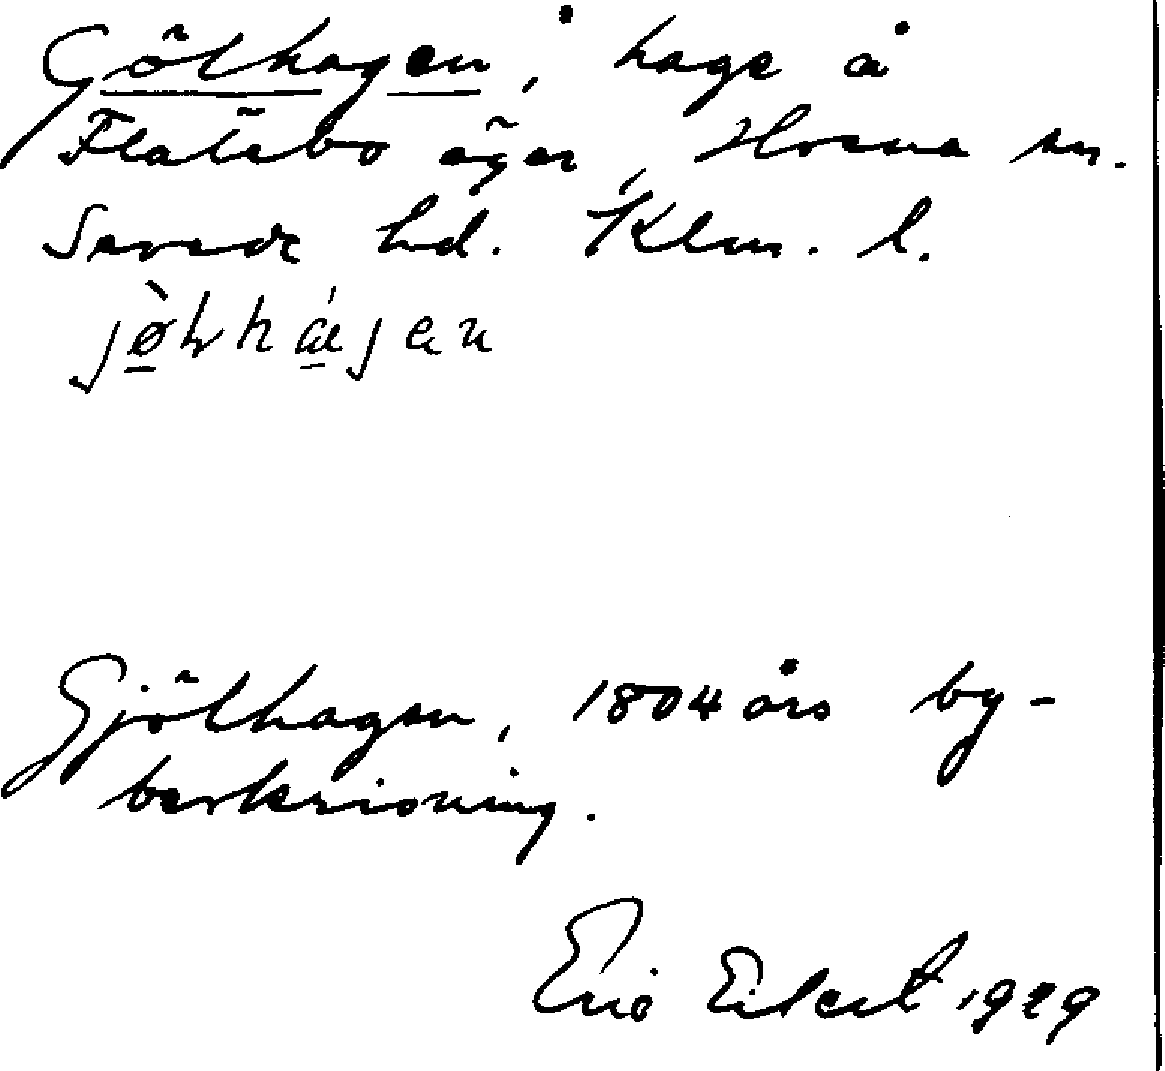 Gölhagen, hage å
Flatebo ägor, Hvena sn.
Sevede hd. Klm. l.
Gjölhagen, 1804 års by-
beskrivning.
Eric Eilert 1929